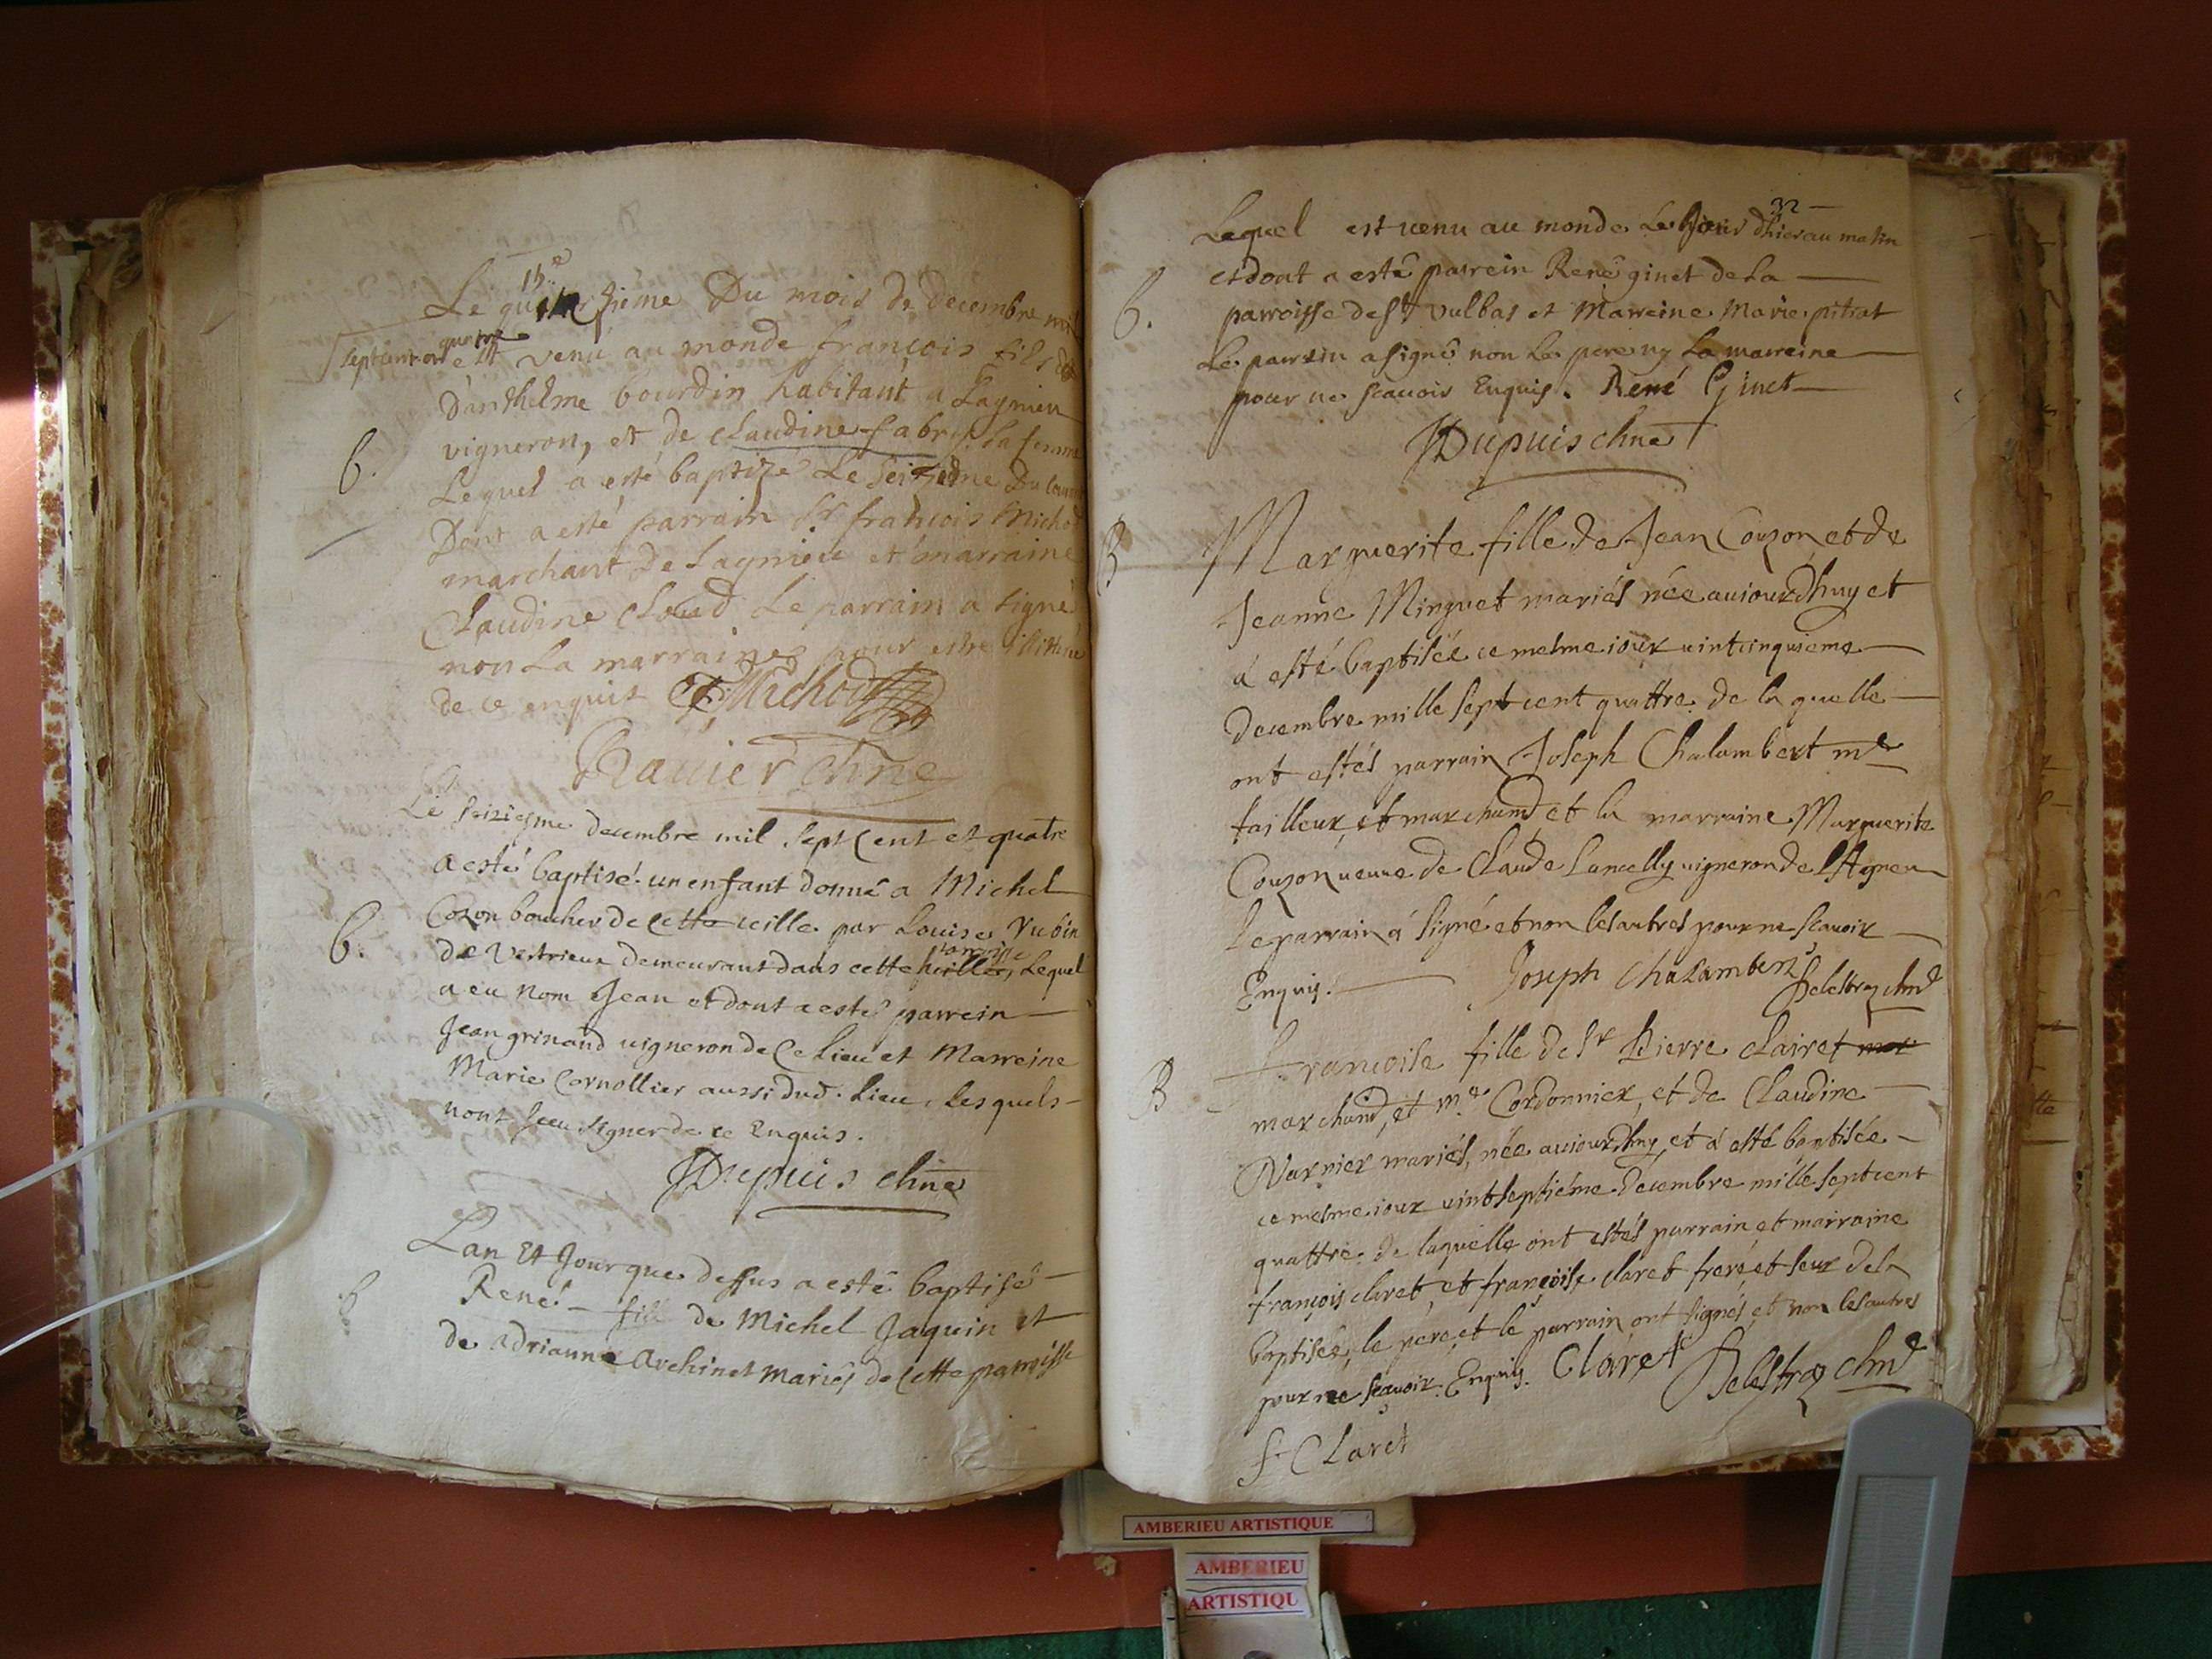 15e
Le quinzieme Du mois de decembre mil
septcent quatre est venu au monde françois fils de
D'anthelme bourdin habitant a Lagnieu
vigneron, et de claudine fabry sa femme
B.
Lequel a esté baptizé Le Seizieme Du courant
Dont a esté parrain Sr françois Michod
marchant de Lagnieu et marraine
Claudine Cloud Le parrain a signé
non La marraine pour estre illitteré
de ce enquis F Michod
Ravier chne
Le seiziesme decembre mil sept Cent et quatre
a esté baptisé un enfant donné a Michel
Cozon boucher de Cette ville par Louise Vubin
B.
de Vertrieux demeurant dans cette paroisse, Lequel
a eu nom Jean et dont a esté parrein
Jean grinand vigneron de Ce Lieu et Marreine
Marie Cornollier aussi dud. Lieu, Lesquels
nont sceu signer de ce Enquis.
Dupuis chne
Lan Et Jour que dessus a esté baptisé
B
René fils de Michel Jaquin et
de adrianne archinet mariés de Cette parroisse
32
Lequel est venu au monde Le Jour d'hier au matin
et dont a esté parrein René ginet de La
B.
parroisse de St Vulbas et Marreine Marie pitrat
Le parrein a signé non Le pere ny La marreine
pour ne scavoir Enquis. René Ginet
Dupuis chne
B
Marguerite fille de Jean Couzon et de
Jeanne Minguet mariés née auiourdhuy et
a esté baptisée ce mesme iour vintcinquieme
decembre mille sept cent quattre de la quelle
ont estés parrain Joseph Chalambert me
tailleur et marchand et la marraine Marguerite
Couzon veuve de Claude Lancelly vigneron de LAgneu
le parrain a signé et non les autres pour ne scavoir
Enquis. Joseph Chalambert
Delestraz chne
B
Francoise fille de Sr Pierre clairet mar
marchand, et me Cordonnier, et de Claudine
Varnier mariés, née auiourdhuy, et a esté baptisée
ce mesme iour vintseptiéme decembre mille septcent
quattre de laquelle ont estés parrain et marraine
françois claret, et françoise claret frere et seur dela
baptisée, le pere et le parrain ont signés et non les autres
pour ne scavoir. Enquis. Claret Delestraz chne
f. Claret
AMBERIEU ARTISTIQUE
AMBERIEU
ARTISTIQU